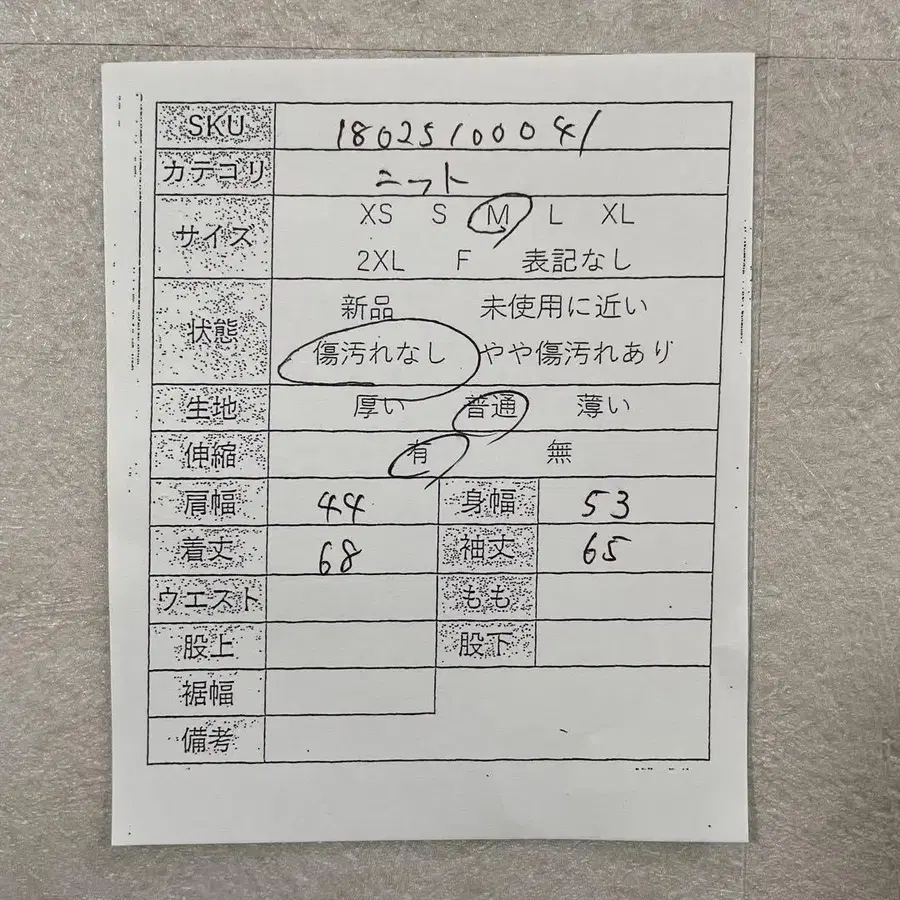 SKU 18025100041
カテゴリ ニット
サイズ XS S M L XL
2XL F 表記なし
状態 新品 未使用に近い
傷汚れなし やや傷汚れあり
生地 厚い 普通 薄い
伸縮 有 無
肩幅 44 身幅 53
着丈 68 袖丈 65
ウエスト もも
股上 股下
裾幅
備考